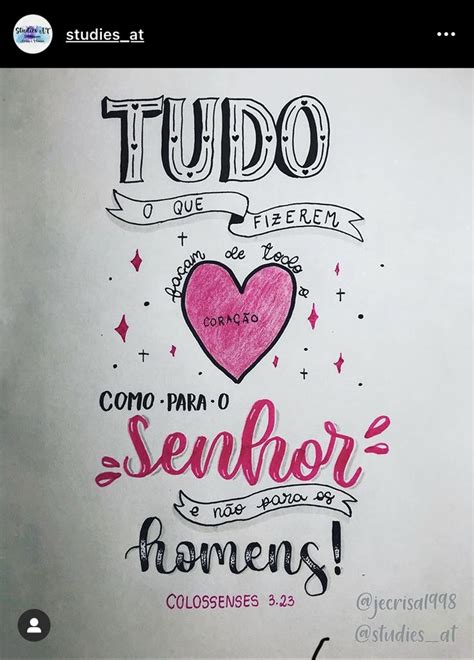 studies_at
TUDO
O QUE FIZEREM
façam de todo o
CORAÇÃO
COMO · PARA · O
Senhor
e não para os
homens!
COLOSSENSES 3.23
@jecrisa1998
@studies_at